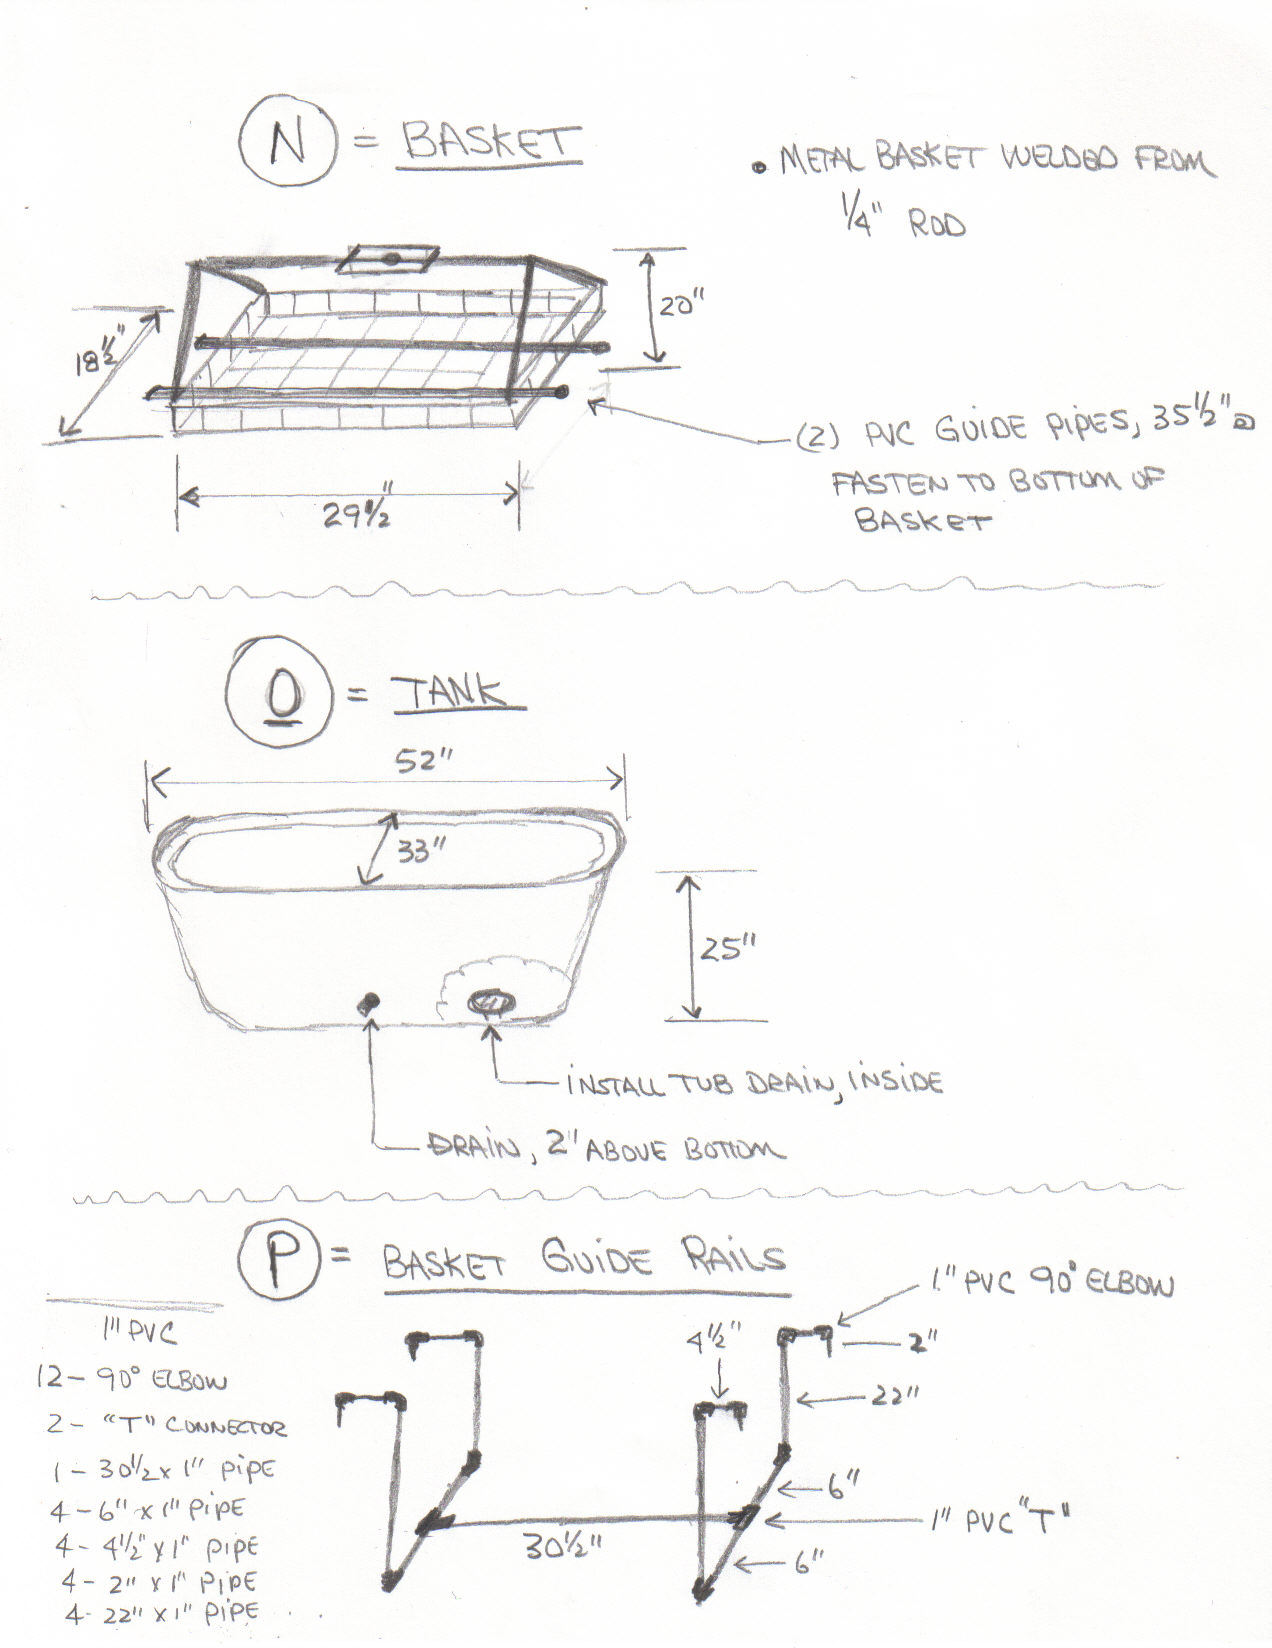 N = BASKET
• METAL BASKET WELDED FROM
1/4" ROD
20"
18 1/2"
(2) PVC GUIDE PIPES, 35 1/2"
FASTEN TO BOTTOM OF
BASKET
29 1/2"
O = TANK
52"
33"
25"
INSTALL TUB DRAIN, INSIDE
DRAIN, 2" ABOVE BOTTOM
P = BASKET GUIDE RAILS
1" PVC 90° ELBOW
1" PVC
4 1/2"
2"
12 - 90° ELBOW
22"
2 - "T" CONNECTOR
1 - 30 1/2 x 1" PIPE
6"
4 - 6" x 1" PIPE
1" PVC "T"
30 1/2"
4 - 4 1/2" x 1" PIPE
6"
4 - 2" x 1" PIPE
4 - 22" x 1" PIPE